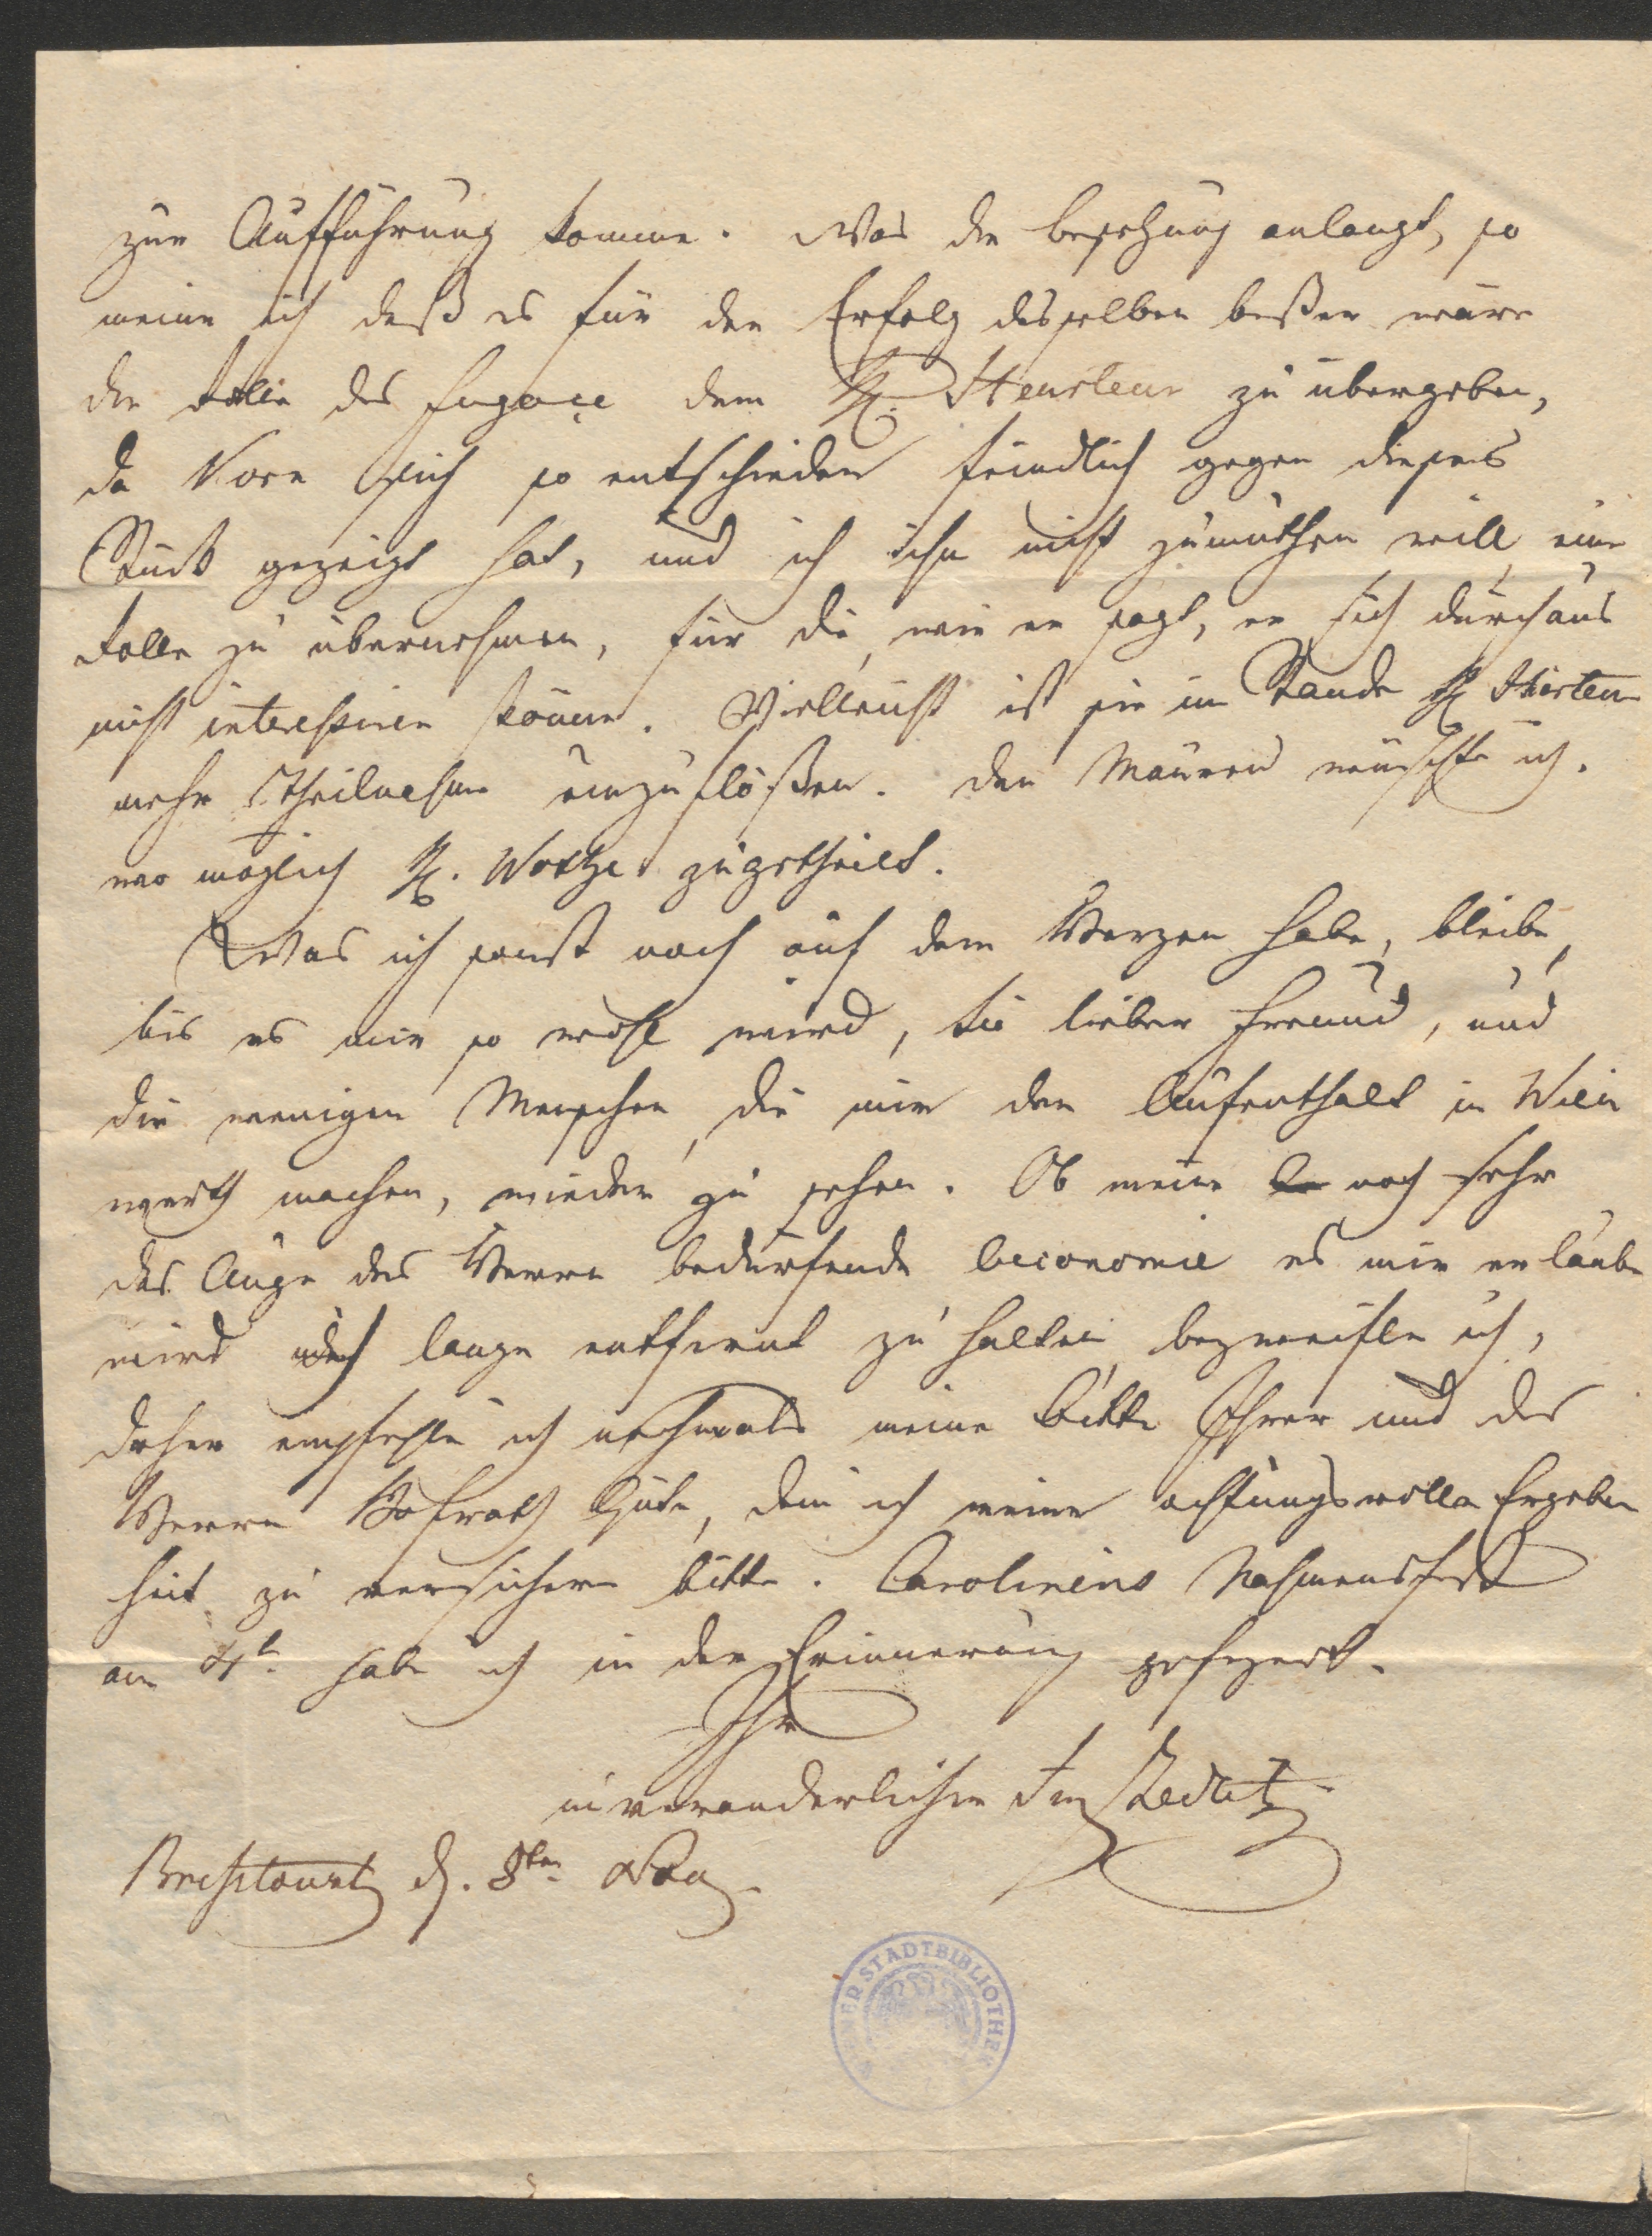 zur Aufführung komme. Was die Besetzung anlangt, so
meine ich daß es für den Erfolg desselben beßer wäre
die Rolle des Fugace dem H. Heurteur zu übergeben,
da Korn sich so entschieden feindlich gegen dieses
Stück gezeigt hat, und ich ihm nicht zumuthen will eine
Rolle zu übernehmen, für die, wie er sagt, er sich durchaus
nicht interessiren könne. Vielleicht ist sie im Stande H
mehr Theilnahme einzuflößen. Den wünschte ich,
wo möglich H. Wothe zugetheilt.
Was ich sonst noch auf dem Herzen habe, bleibe,
bis es mir so wohl wird, Sie lieber Freund, und
die wenigen Menschen, die mir den Aufenthalt in Wien
werth machen, wieder zu sehen. Ob meine noch sehr
das Auge des Herrn bedürfende Oeconomie es mir erlauben
wird mich lange entfernt zu halten bezweifle ich,
daher empfehle ich nochmals meine Bitte Ihrer und des
Herrn Hofrath Güte, dem ich meine achtungsvolle Ergeben
heit zu versichern bitte. Carolinens Nahmensfest
am 4t. habe ich in der Erinnerung gefeyert.
Ihr
unveranderlicher Frd Zedlitz
d. 8ten Nov
WIENER STADTBIBLIOTHEK